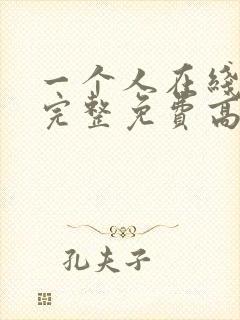 一个人在线
完整免费高
孔夫子